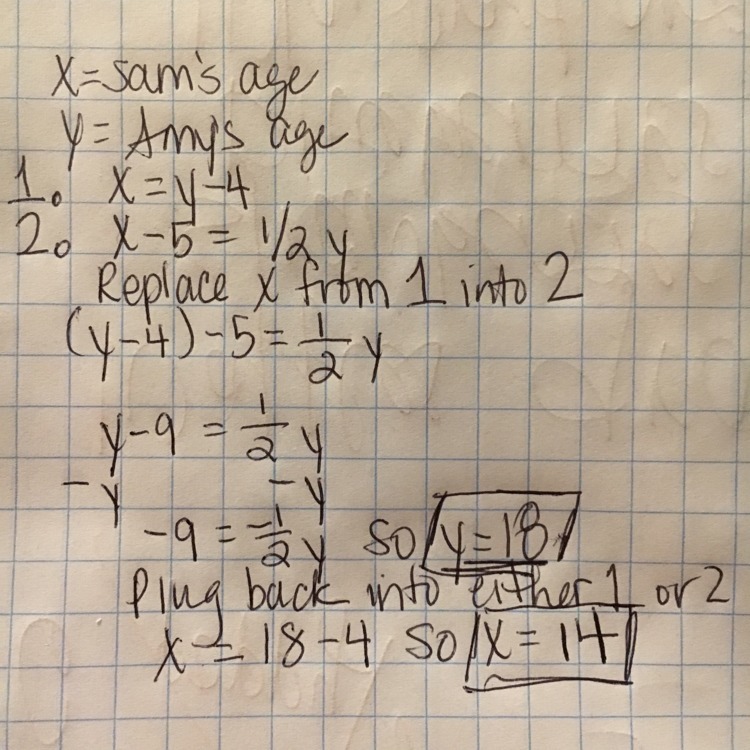 x = sam's age
y = Amy's age
1. x = y - 4
2. x - 5 = 1/2 y
Replace x from 1 into 2
(y - 4) - 5 = 1/2 y
y - 9 = 1/2 y
-y -y
-9 = -1/2 y so y = 18
Plug back into either 1 or 2
x = 18 - 4 so x = 14